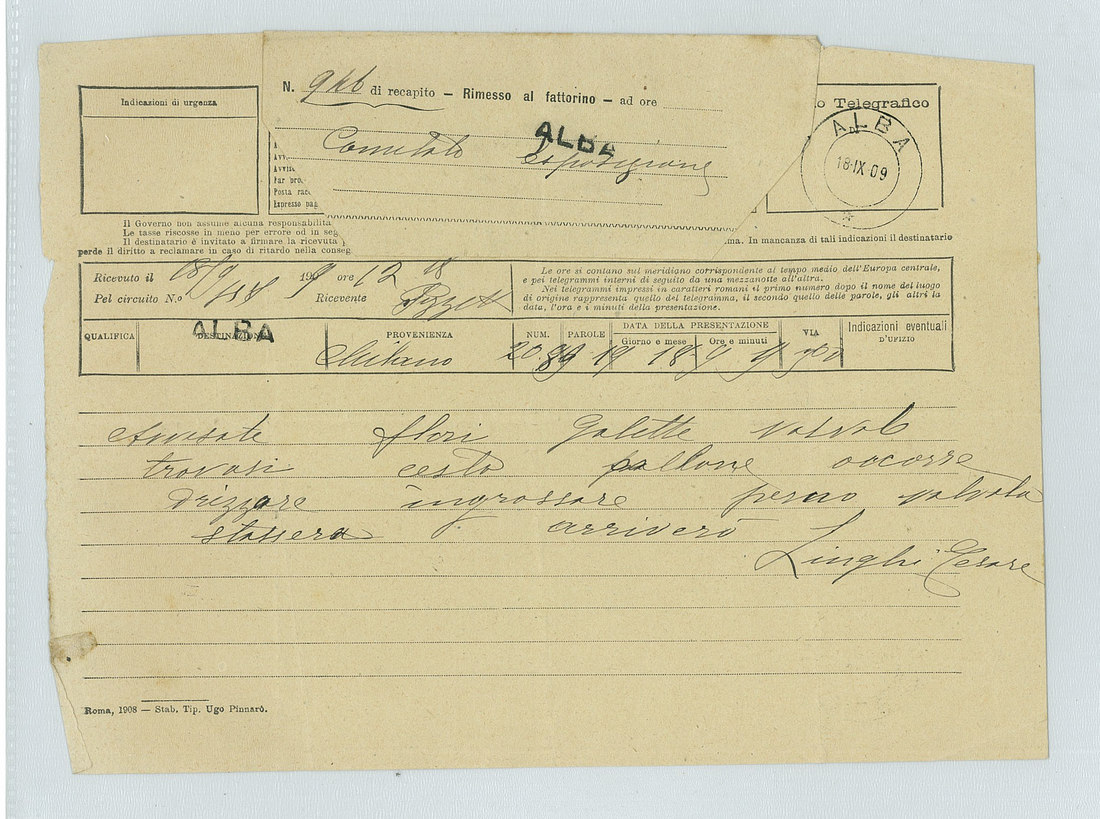 N. di recapito — Rimesso al fattorino — ad ore
ALBA
Comitato Esposizione
Indicazioni di urgenza
o Telegrafico
ALBA
18·IX 09
Avv
Avvis
Far pro
Posta rac
Expresso pag
Il Governo non assume alcuna responsabilità
Le tasse riscosse in meno per errore od in seg
Il destinatario è invitato a firmare la ricevuta
ma. In mancanza di tali indicazioni il destinatario
perde il diritto a reclamare in caso di ritardo nella conseg
Ricevuto il 18/9 1909 ore 12 18
Pel circuito N.º Ricevente
Le ore si contano sul meridiano corrispondente al tempo medio dell'Europa centrale,
e pei telegrammi interni di seguito da una mezzanotte all'altra.
Nei telegrammi impressi in caratteri romani il primo numero dopo il nome del luogo
di origine rappresenta quello del telegramma, il secondo quello delle parole, gli altri la
data, l'ora e i minuti della presentazione.
QUALIFICA DESTINAZIONE PROVENIENZA NUM. PAROLE DATA DELLA PRESENTAZIONE VIA Indicazioni eventuali
Giorno e mese Ore e minuti D'UFIZIO
ALBA
Milano 19 18/9
Avvisate flori Galette valvol
trovasi cesto pallone occorre
drizzare ingrossare perno valvola
stassera arriverò
Linghi Cesare
Roma, 1908 — Stab. Tip. Ugo Pinnarò.